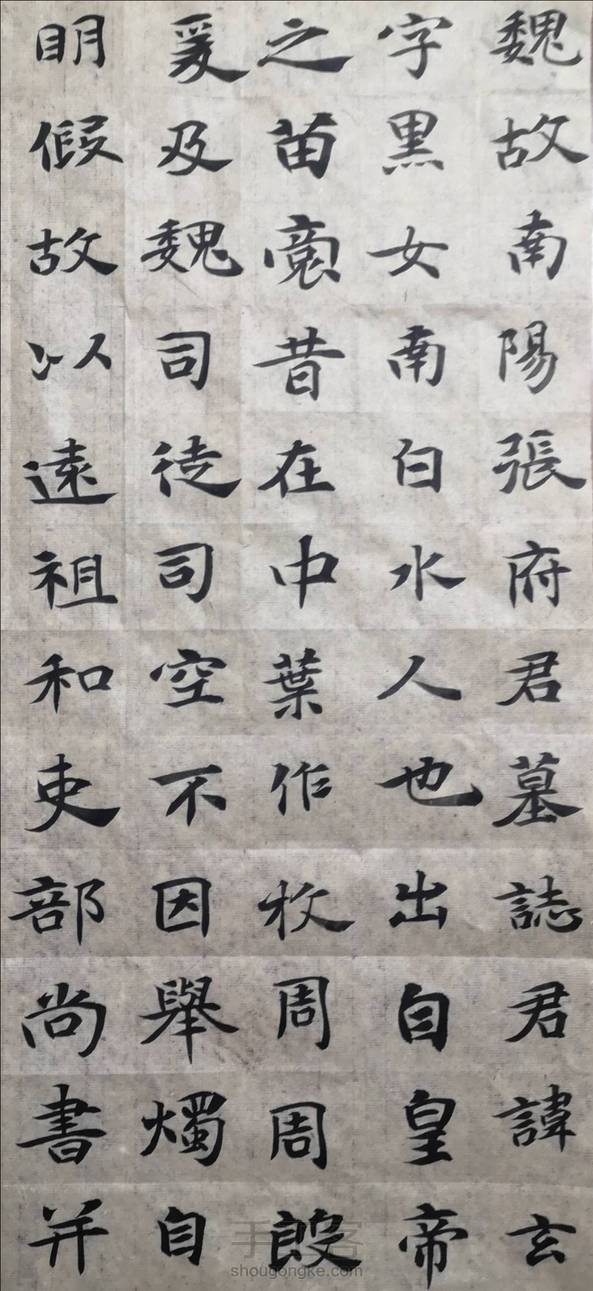 魏故南陽張府君墓誌君諱玄
字黑女南白水人也出自皇帝
之苗裔昔在中葉作牧周周殷
爰及魏司徒司空不因舉燭自
明假故以遠祖和吏部尚書并
手工客
shougongke.com